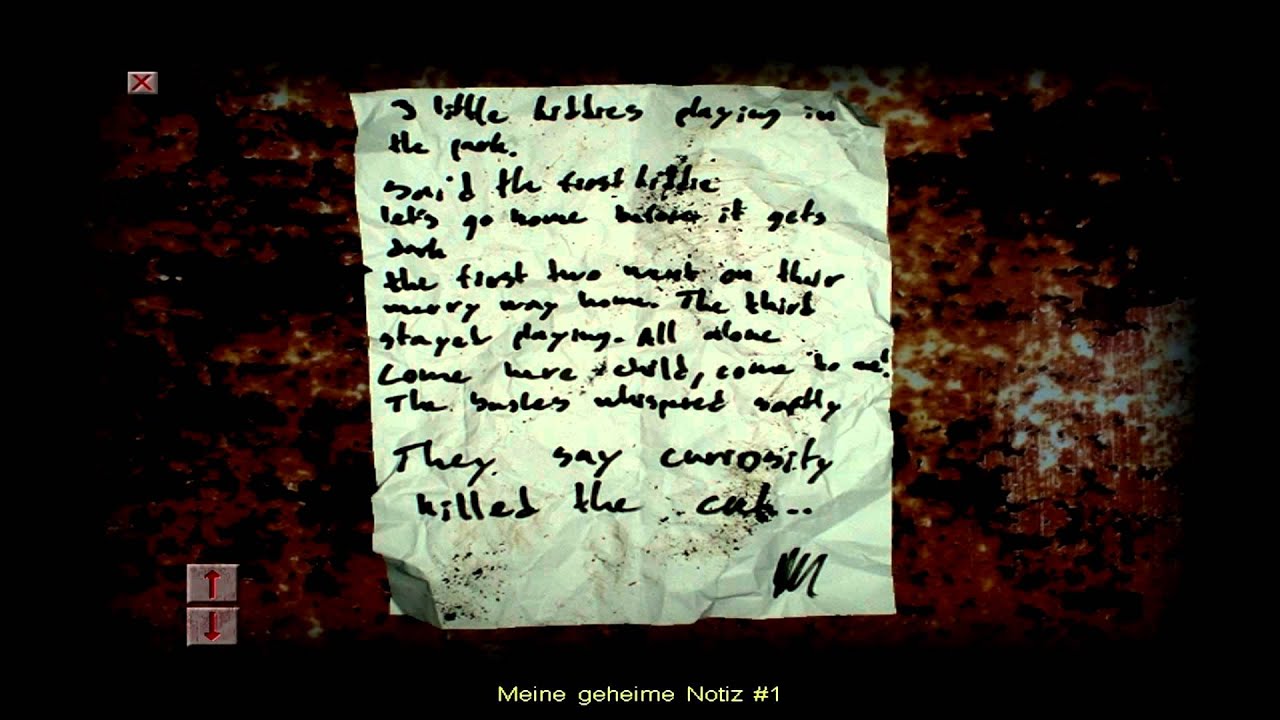 3 little kiddies playing in
the park.
said the first kiddie
let's go home before it gets
dark
the first two went on their
merry way home. The third
stayed playing. All alone
Come here child, come to me!
The bushes whispered softly
They say curiosity
killed the cat..
Meine geheime Notiz #1